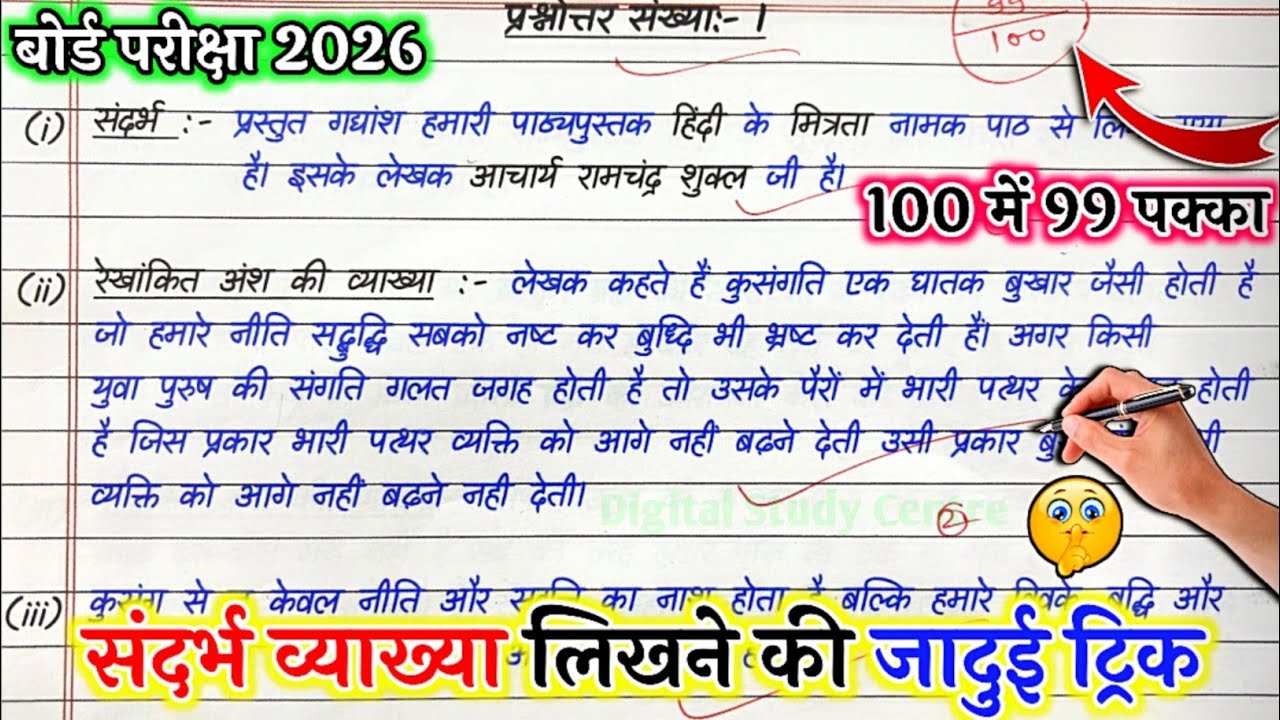 प्रश्नोत्तर संख्या:- 1
बोर्ड परीक्षा 2026
99
100
(i) संदर्भ :- प्रस्तुत गद्यांश हमारी पाठ्यपुस्तक हिंदी के मित्रता नामक पाठ से
है। इसके लेखक आचार्य रामचंद्र शुक्ल जी है।
100 में 99 पक्का
(ii) रेखांकित अंश की व्याख्या :- लेखक कहते हैं कुसंगति एक घातक बुखार जैसी होती है
जो हमारे नीति सद्बुद्धि सबको नष्ट कर बुध्दि भी भ्रष्ट कर देती हैं। अगर किसी
युवा पुरुष की संगति गलत जगह होती है तो उसके पैरों में भारी पत्थर होती
है जिस प्रकार भारी पत्थर व्यक्ति को आगे नहीं बढ़ने देती उसी प्रकार
व्यक्ति को आगे नहीं बढ़ने नही देती।
Digital Study Centre
2
(iii) कुसंग से केवल नीति और का नाश होता है बल्कि हमारे विवेक बुद्धि और
संदर्भ व्याख्या लिखने की जादुई ट्रिक